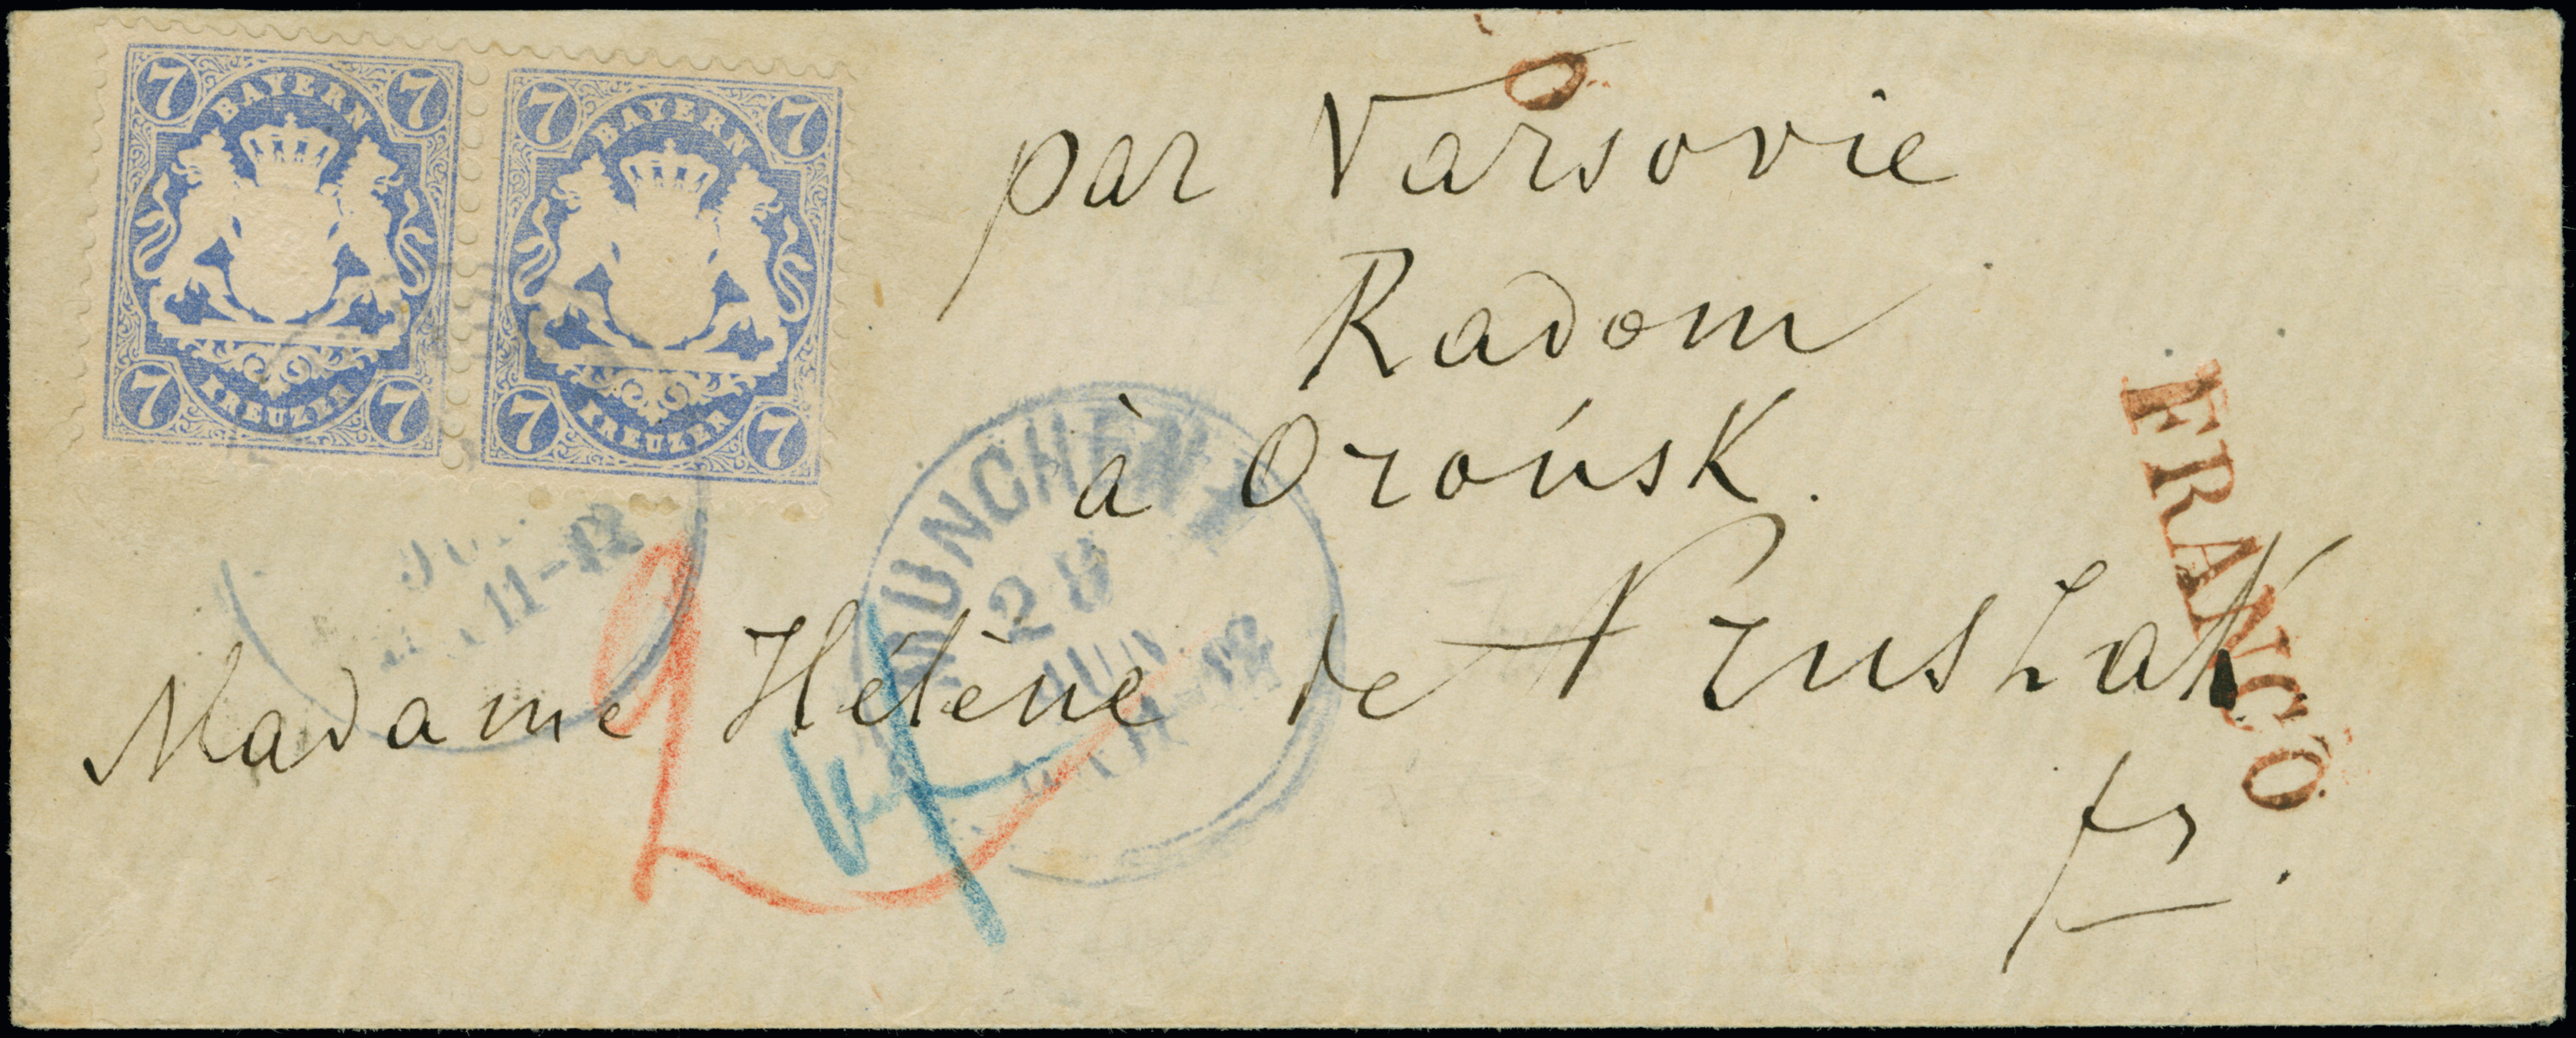 7 BAYERN 7
7 KREUZER 7
7 BAYERN 7
7 KREUZER 7
par Varsovie
Radom
à Orońsk.
Madame Hélène de Pruszak
fr.
FRANCO
MÜNCHEN I
28
JUN
11-12
11-12